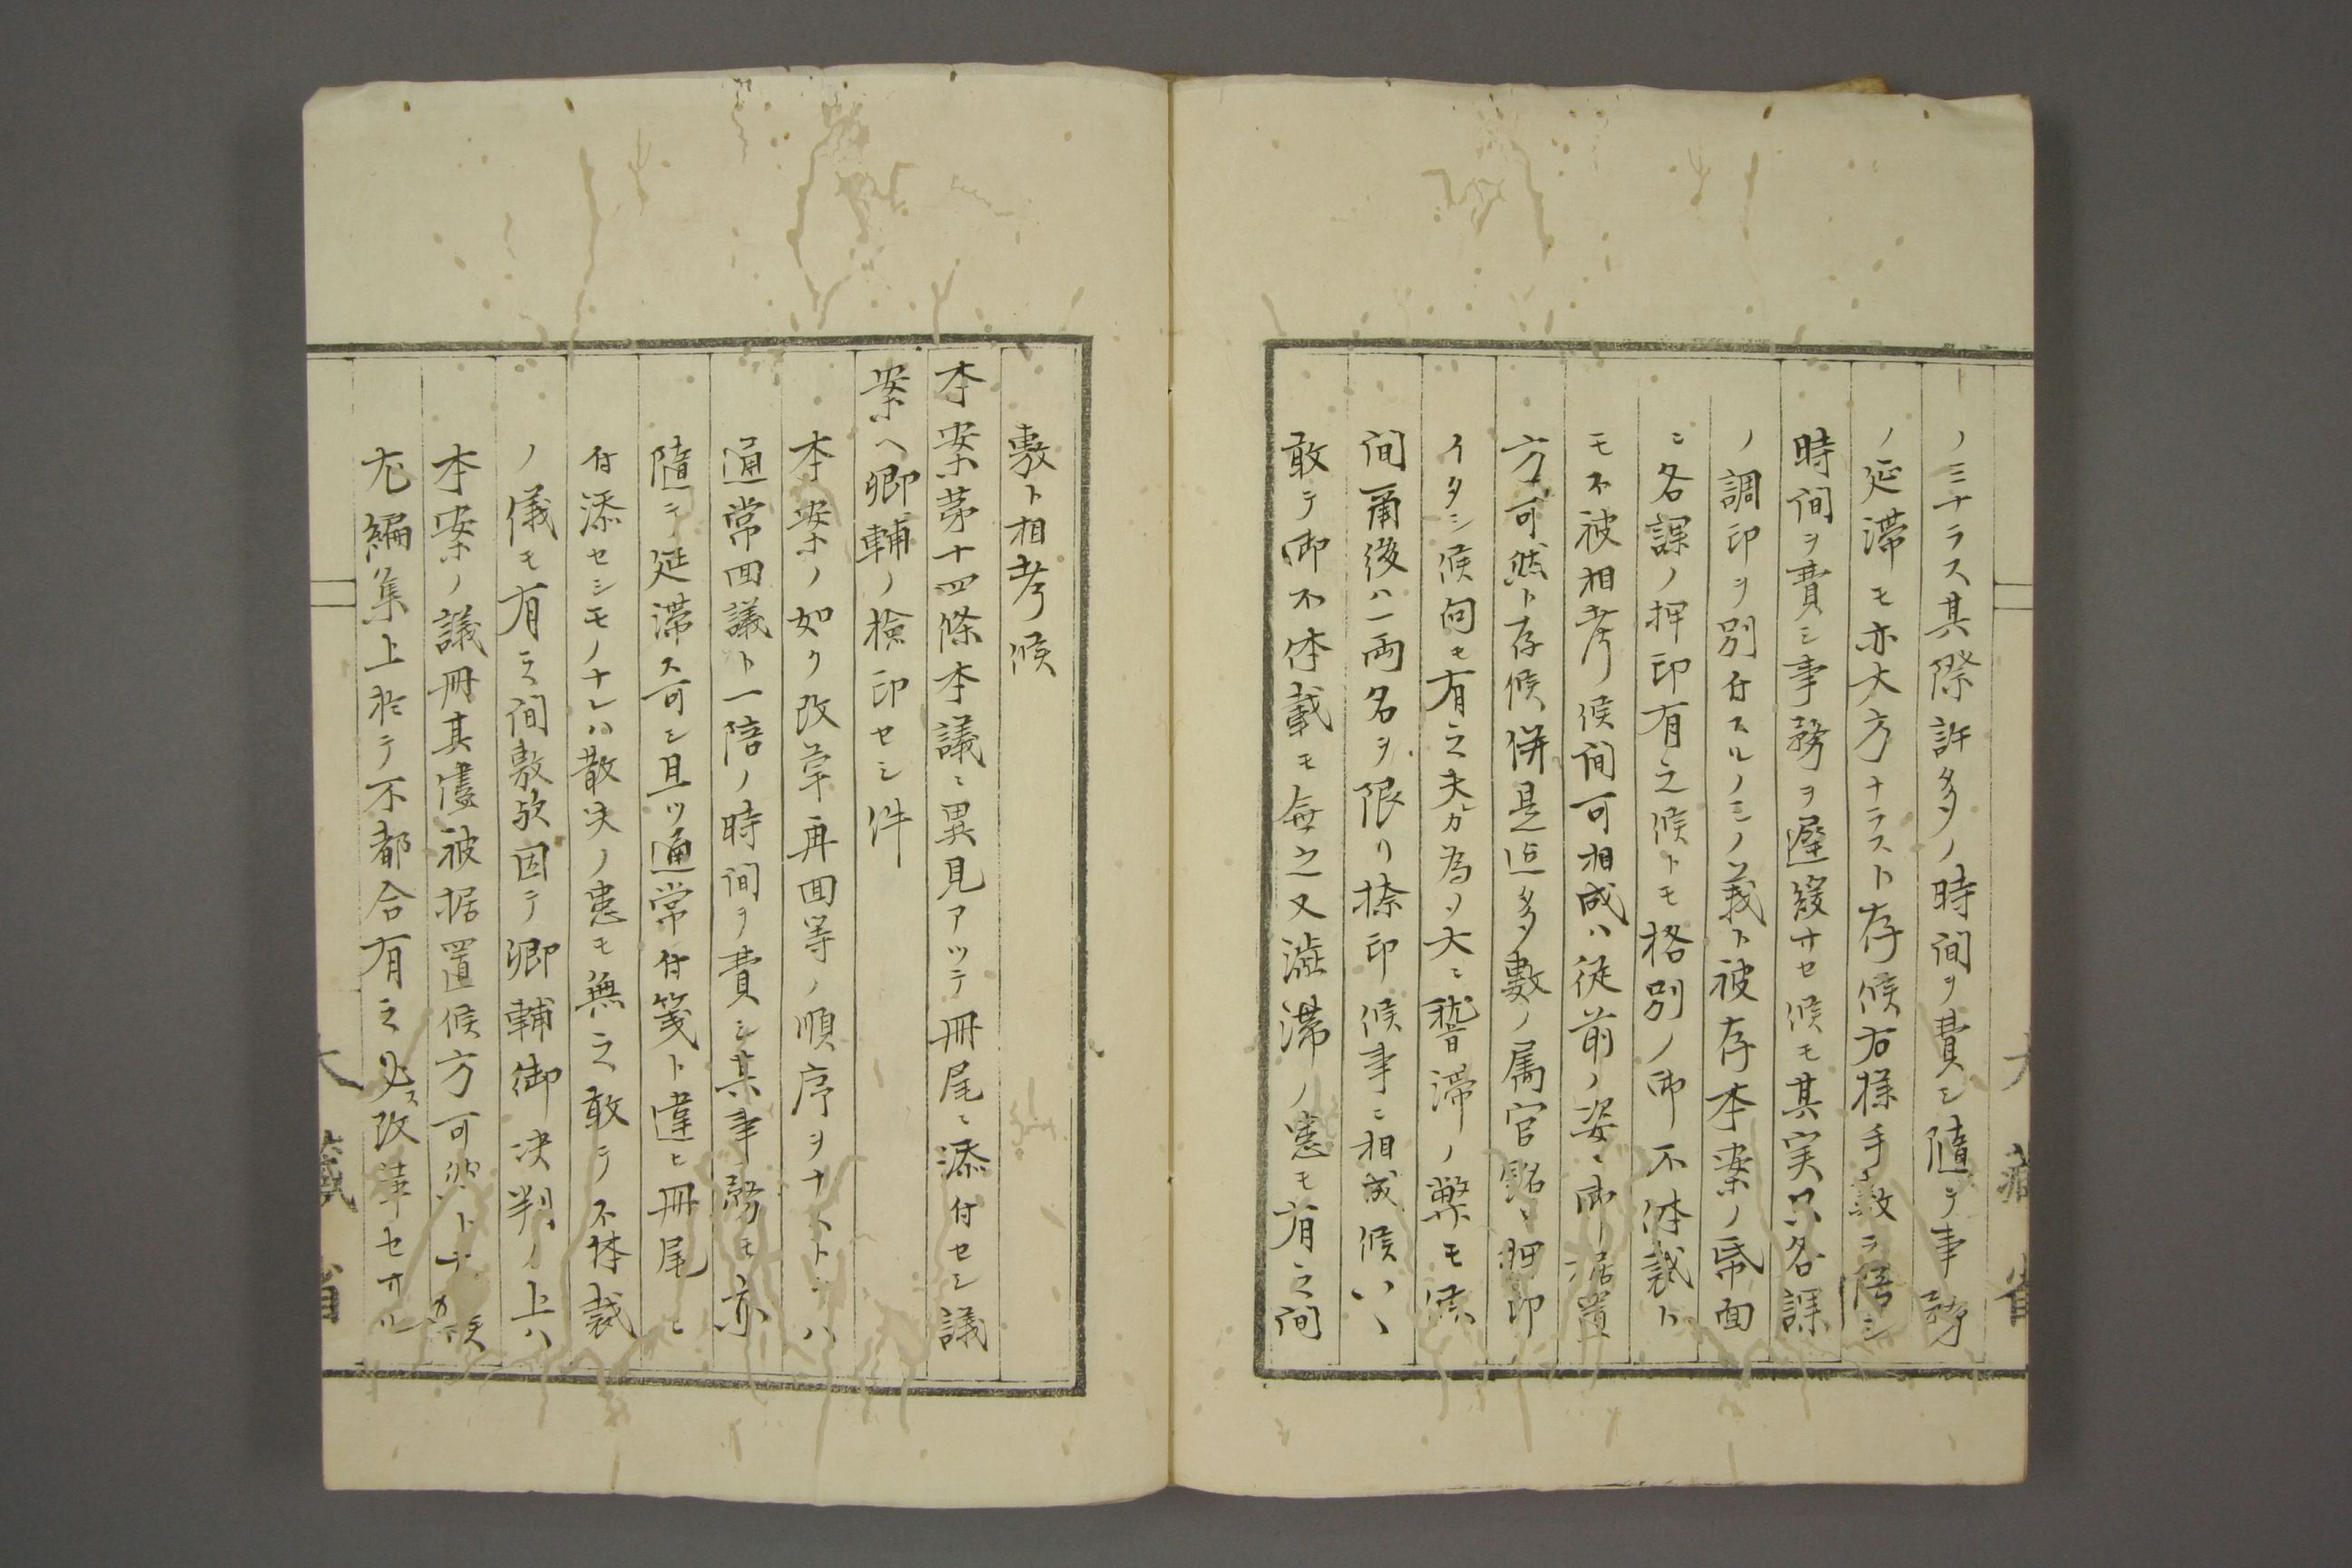 ノミナラス其際許多ノ時间ヲ費シ隨テ事務
ノ延滞モ亦大方ナラスト存候右様手数ヲ倍シ
時间ヲ費シ事務ヲ遅緩サセ候モ其実只各課
ノ調印ヲ別付スルノミノ義ト被存本案ノ帋面
ニ各課ノ押印有之候トモ格別ノ御不体裁ト
モ不被相考候间可相成ハ従前ノ姿ニ御据置
方可然ト存候併是迄多数ノ属官銘々押印
イタシ候向モ有之夫カ為メ大ニ稽滞ノ弊モ候
间爾後ハ一両名ヲ限リ捺印候事ニ相成候ハヽ
敢テ御不体裁モ無之又澁滞ノ患モ有之间
敷ト相考候
本案茅十四條本議ニ異見アツテ冊尾ニ添付セシ議
案ヘ卿輔ノ検印セシ件
本案ノ如ク改革再回等ノ順序ヲナストキハ
通常回議ト一倍ノ時间ヲ費シ其事務モ亦
隨テ延滞ス可シ且ツ通常付箋ト違ヒ冊尾ニ
付添セシモノナレハ散失ノ患モ無之敢テ不体裁
ノ儀モ有之间敷欤因テ卿輔御决判ノ上ハ
本案ノ議冊其儘被据置候方可然ト
尤編集上於テ不都合有之必ス改革セサル
大藏省
大藏省